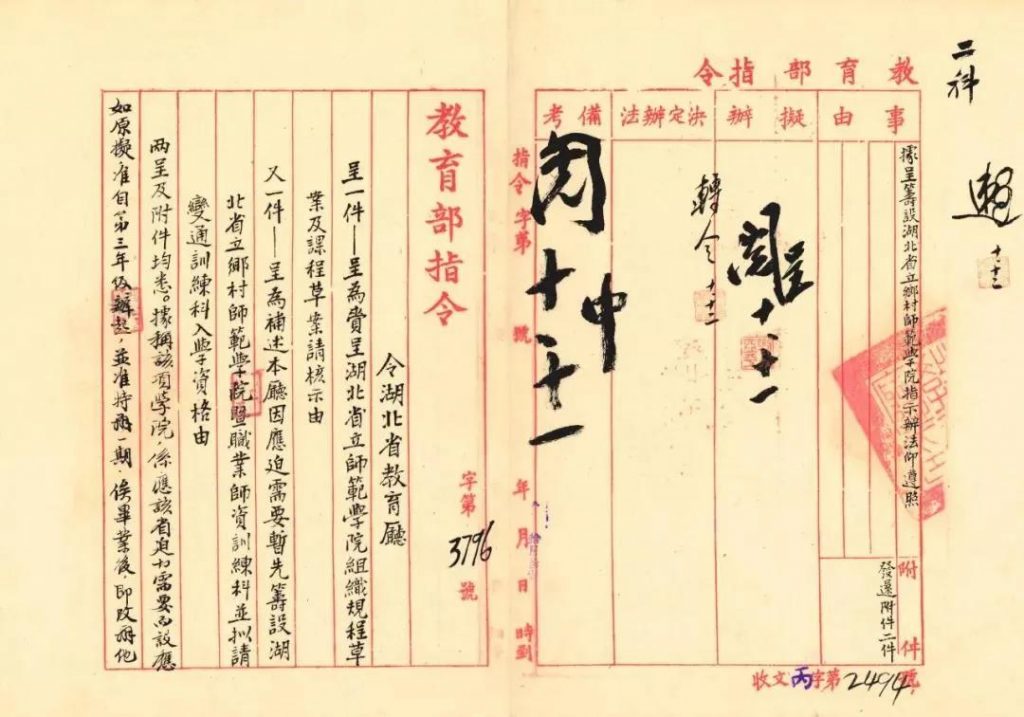 二科
趙 十、十三
教育部指令
事由
據呈籌設湖北省立鄉村師範學院指示辦法仰遵照
附件
發還附件二件
擬辦
閱呈 十、十一
決定辦法
轉令 十、十三
備考
閱 中 十、十一
指令 字第 號 年 月 日 時到
收文丙字第2494號
教育部指令
字第3796號
令湖北省教育廳
呈一件——呈為賫呈湖北省立師範學院組織規程草
業及課程草業請核示由
又一件——呈為補述本廳因應迫需要暫先籌設湖
北省立鄉村師範學院暨職業師資訓練科並拟請
變通訓練科入學資格由
兩呈及附件均悉。據稱該項學院,係應該省迫切需要而設應
如原擬准自第三年級辦起,並准特辦一期,俟畢業後,即改辦他